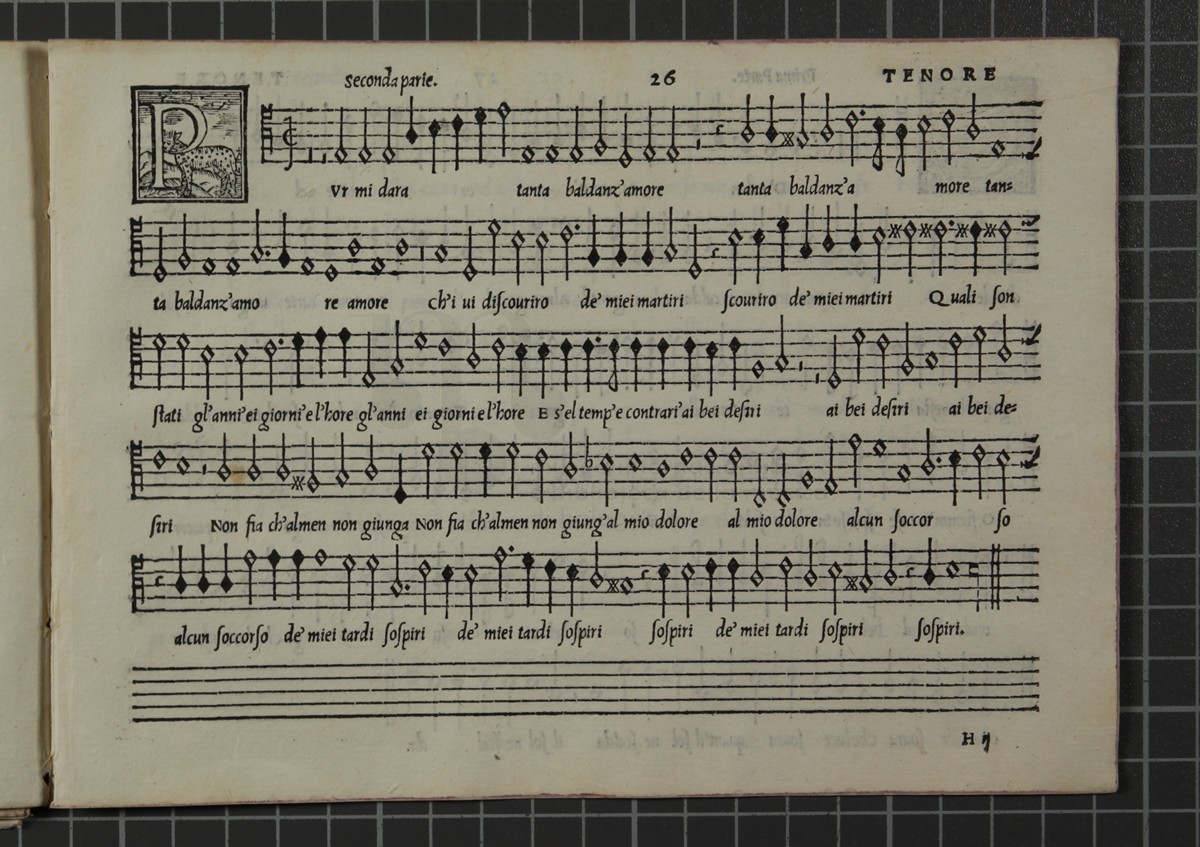 Seconda parte. 26 TENORE
PVr mi dara tanta baldanz'amore tanta baldanz'a more tan=
ta baldanz'amo re amore ch'i ui discouriro de' miei martiri scouriro de' miei martiri Quali son
stati gl'anni'ei giorni'e l'hore gl'anni ei giorni e l'hore E s'el temp'e contrari'ai bei desiri ai bei desiri ai bei de=
siri Non fia ch'almen non giunga Non fia ch'almen non giung'al mio dolore al mio dolore alcun soccor so
alcun soccorso de' miei tardi sospiri de' miei tardi sospiri sospiri de' miei tardi sospiri sospiri.
H